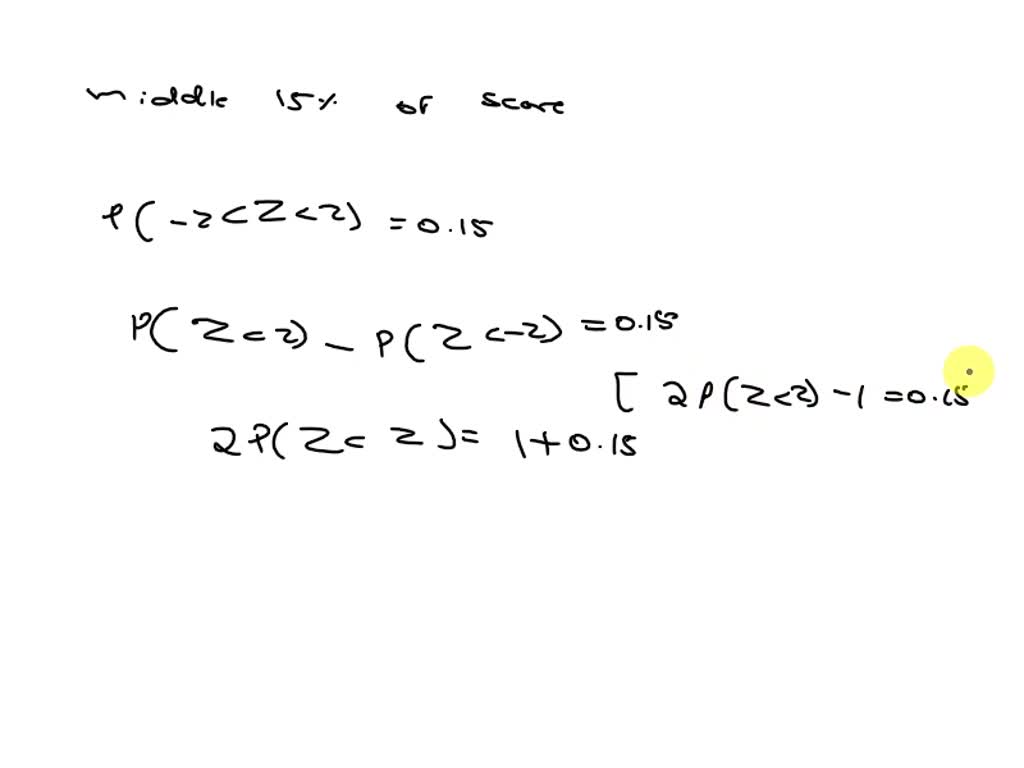 middle 15% of score
P(-z<Z<z) = 0.15
P(Z<z) - P(Z<-z) = 0.15
[ 2P(Z<z) -1 = 0.15
2P(Z< z) = 1+0.15